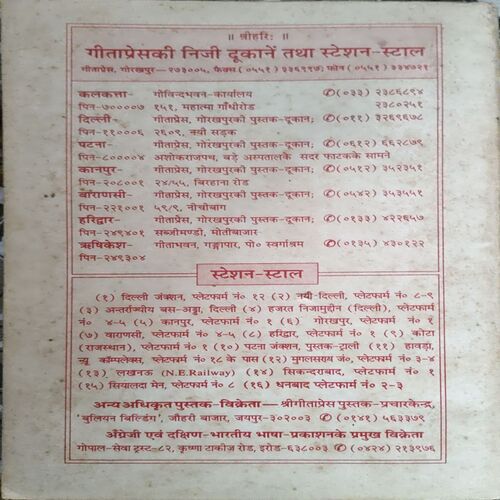 ॥ श्रीहरिः ॥
गीताप्रेसकी निजी दूकानें तथा स्टेशन-स्टाल
गीताप्रेस, गोरखपुर— २७३००५, फैक्स (०५५१) ३३६९९७; फोन (०५५१) ३३४७२१
कलकत्ता- गोविन्दभवन-कार्यालय ✆(०३३) २३८६८९४
पिन-७००००७ १५१, महात्मा गाँधीरोड २३८०२५१
दिल्ली- गीताप्रेस, गोरखपुरकी पुस्तक-दूकान; ✆(०११) ३२६९६७८
पिन-११०००६ २६०९, नयी सड़क
पटना- गीताप्रेस, गोरखपुरकी पुस्तक-दूकान; ✆(०६१२) ६६२८७९
पिन-८००००४ अशोकराजपथ, बड़े अस्पतालके सदर फाटकके सामने
कानपुर- गीताप्रेस, गोरखपुरकी पुस्तक-दूकान; ✆(०५१२) ३५२३५१
पिन-२०८००१ २४/५५, बिरहाना रोड
वाराणसी- गीताप्रेस, गोरखपुरकी पुस्तक-दूकान; ✆(०५४२) ३५३५५१
पिन-२२१००१ ५९/९, नीचीबाग
हरिद्वार- गीताप्रेस, गोरखपुरकी पुस्तक-दूकान; ✆(०१३३) ४२२६५७
पिन-२४९४०१ सब्जीमण्डी, मोतीबाजार
ऋषिकेश- गीताभवन, गङ्गापार, पो० स्वर्गाश्रम ✆(०१३५) ४३०१२२
पिन-२४९३०४
स्टेशन-स्टाल
(१) दिल्ली जंक्शन, प्लेटफार्म नं० १२ (२) नयी-दिल्ली, प्लेटफार्म नं० ८-९
(३) अन्तर्राज्यीय बस-अड्डा, दिल्ली (४) हजरत निजामुद्दीन (दिल्ली), प्लेटफार्म
नं० ४-५ (५) कानपुर, प्लेटफार्म नं० १ (६) गोरखपुर, प्लेटफार्म नं० १
(७) वाराणसी, प्लेटफार्म नं० ४-५ (८) हरिद्वार, प्लेटफार्म नं० १ (९) कोटा
(राजस्थान), प्लेटफार्म नं० १ (१०) पटना जंक्शन, पुस्तक-ट्राली (११) हावड़ा,
न्यू कॉम्पलेक्स, प्लेटफार्म नं० १८ के पास (१२) मुगलसराय जं०, प्लेटफार्म नं० ३-४
(१३) लखनऊ (N.E.Railway) (१४) सिकन्दराबाद, प्लेटफार्म नं० १
(१५) सियालदा मेन, प्लेटफार्म नं० ८ (१६) धनबाद प्लेटफार्म नं० २-३
अन्य अधिकृत पुस्तक-विक्रेता—श्रीगीताप्रेस पुस्तक-प्रचारकेन्द्र,
'बुलियन बिल्डिंग', जौहरी बाजार, जयपुर-३०२००३ ✆(०१४१) ५६३३७९
अँग्रेजी एवं दक्षिण-भारतीय भाषा-प्रकाशनके प्रमुख विक्रेता
गोपाल-सेवा ट्रस्ट-८२, कृष्णा टाकीज रोड, इरोड-६३८००३ ✆(०४२४) २१३९७६